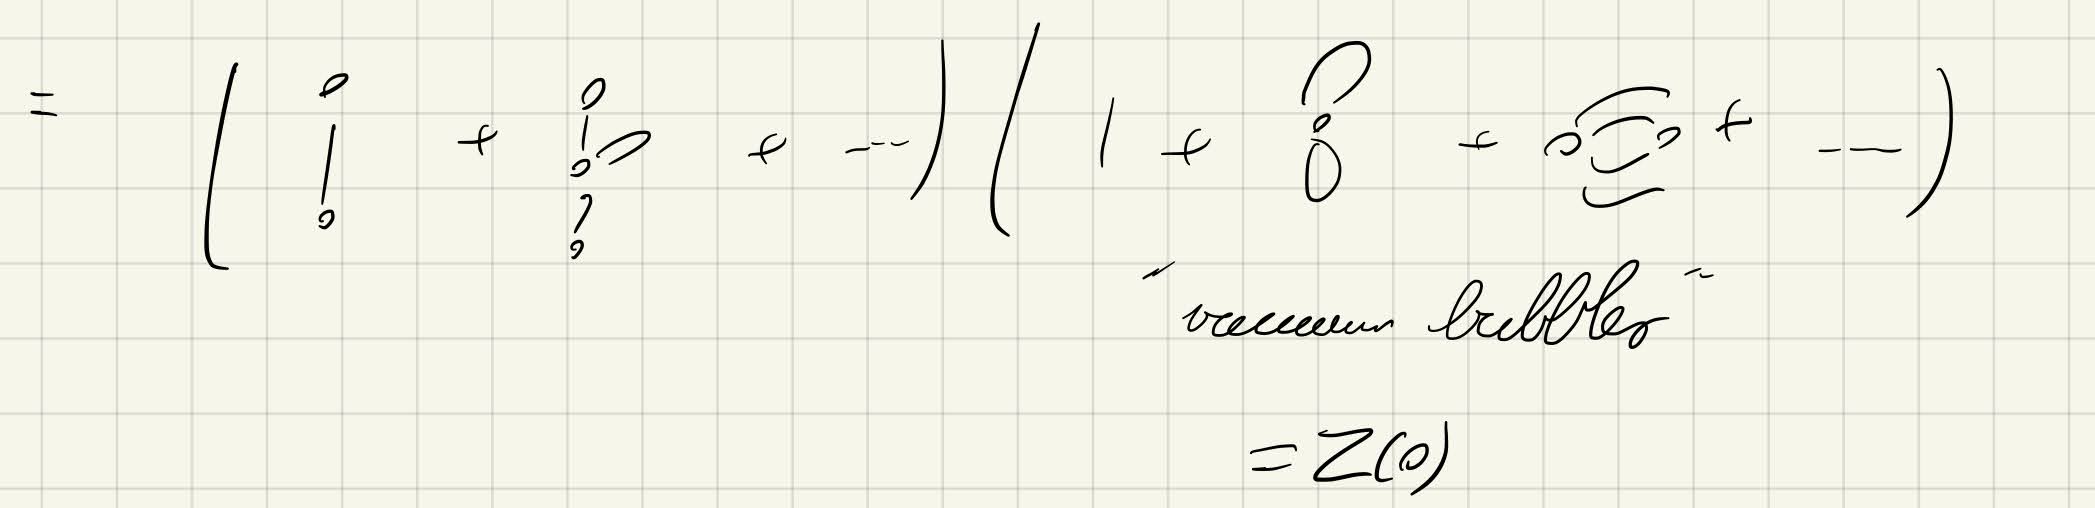 = ( + + --- ) ( 1 + + + --- )
"vacuum bubbles"
= Z(0)